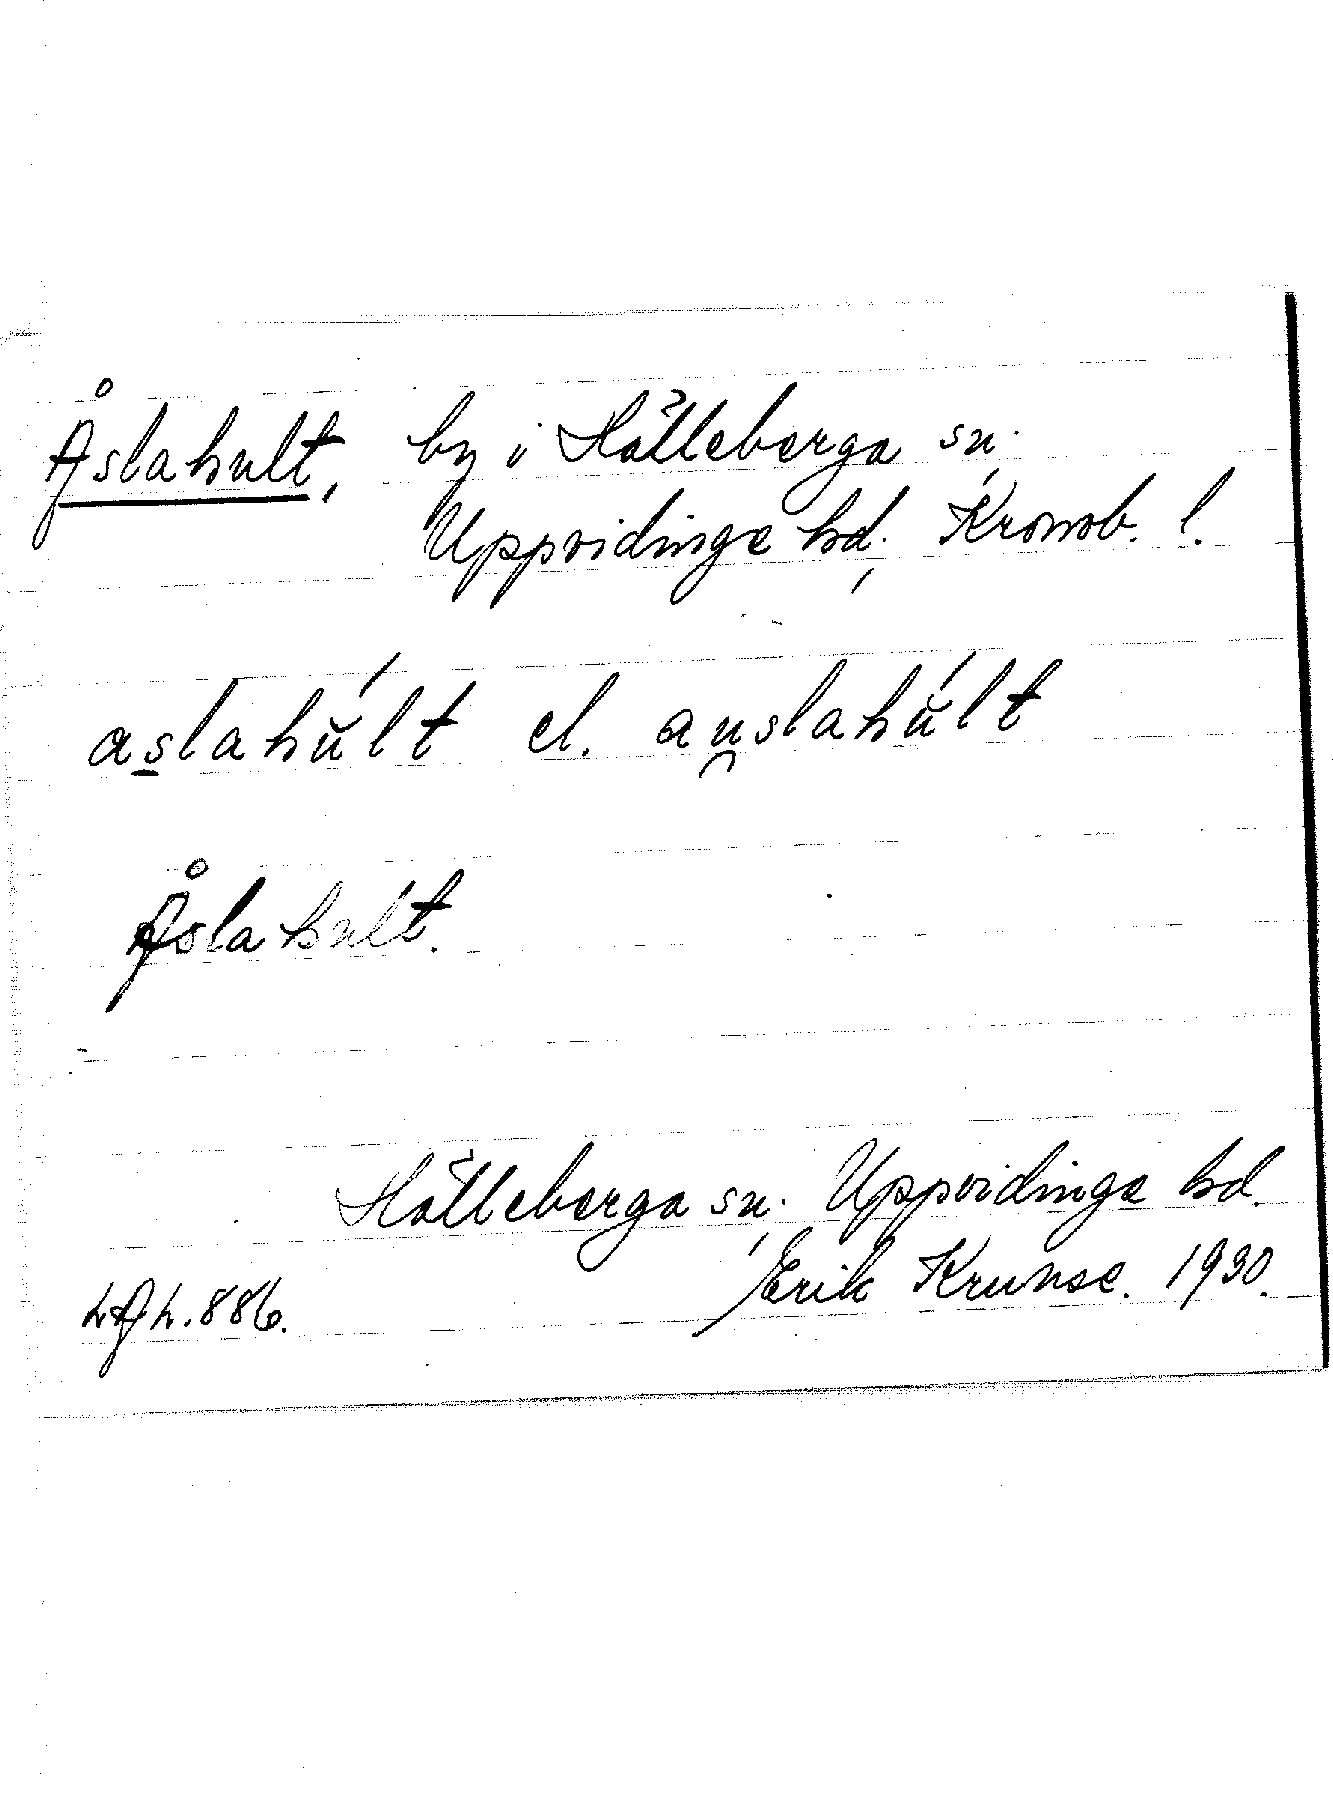 Åslahult, by i Hälleberga sn.
Uppvidinge hd. Kronob. l.
aslahúlt el. auslahúlt
Åslahult.
Hälleberga sn. Uppvidinge hd.
Erik Krunse. 1930.
LAL.886.